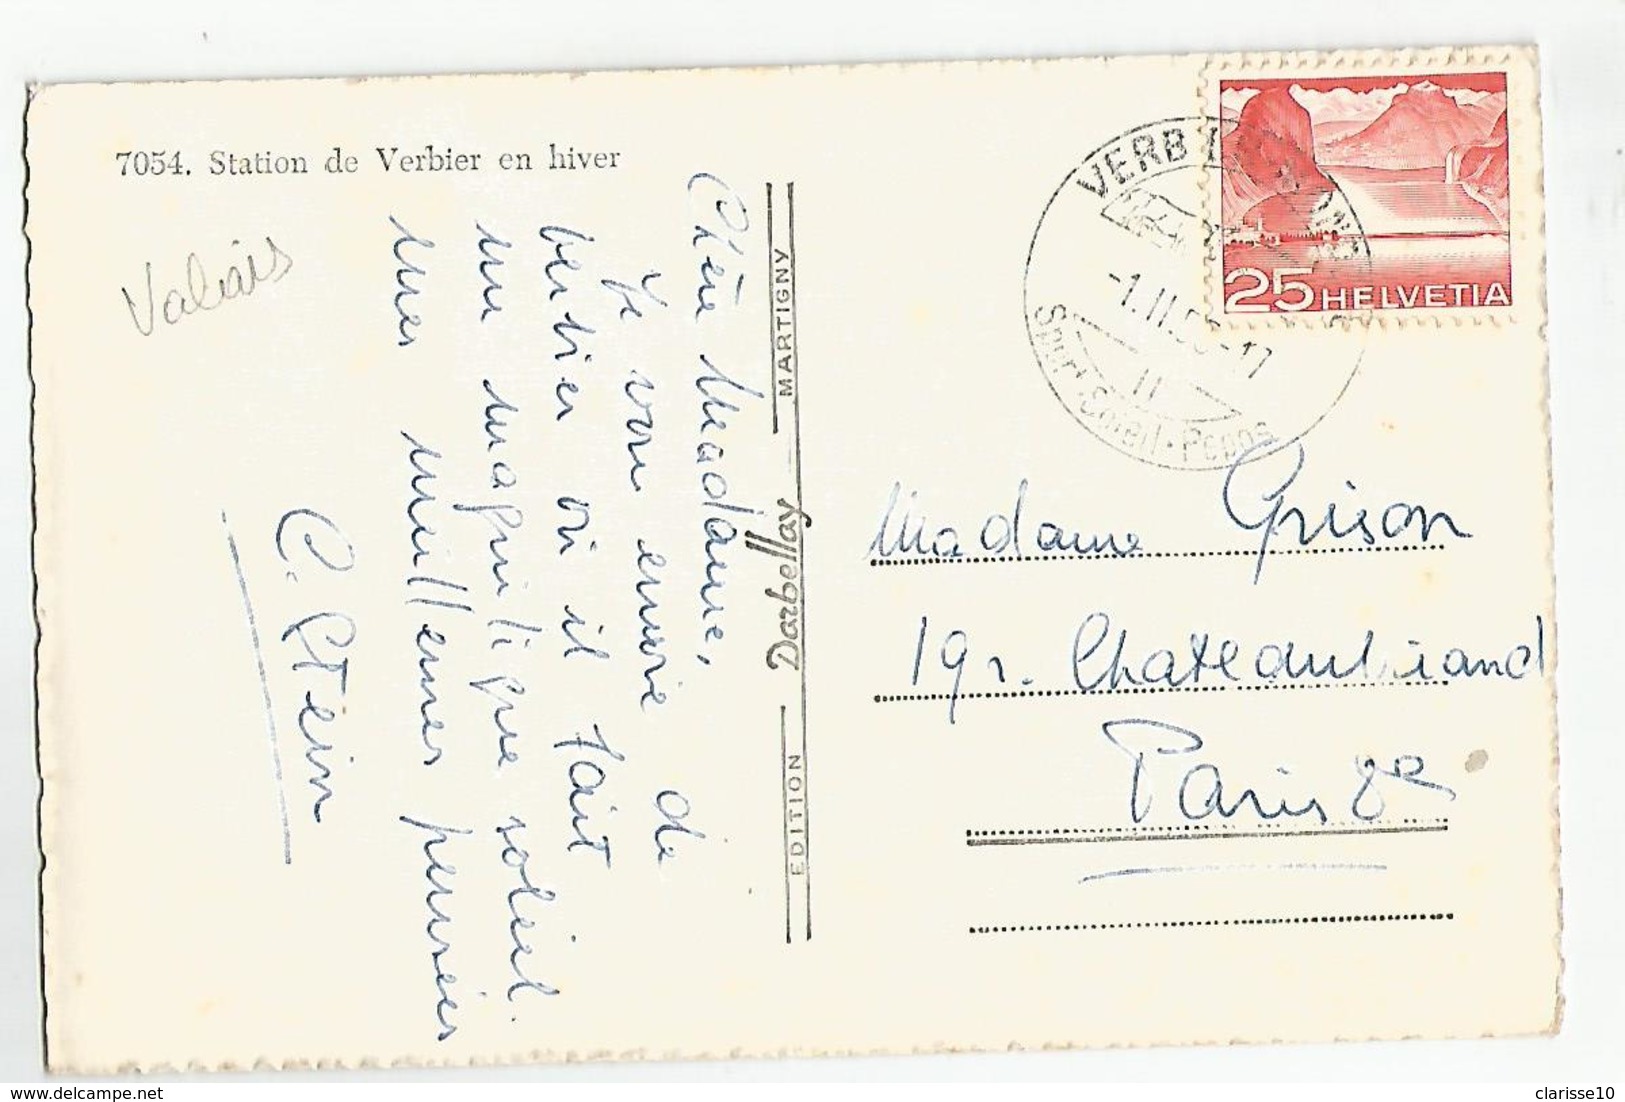 7054. Station de Verbier en hiver
Valais
Chère Madame,
Je vous envoie de
Verbier où il fait
un magnifique soleil.
mes meilleures pensées
C. Stein
EDITION Darbellay MARTIGNY
VERBIER
-1.II.5 -17
II
Sport·Soleil·Repos
25 HELVETIA
Madame Grison
19 r. Chateaubriand
Paris 8e
delcampe.net
clarisse10